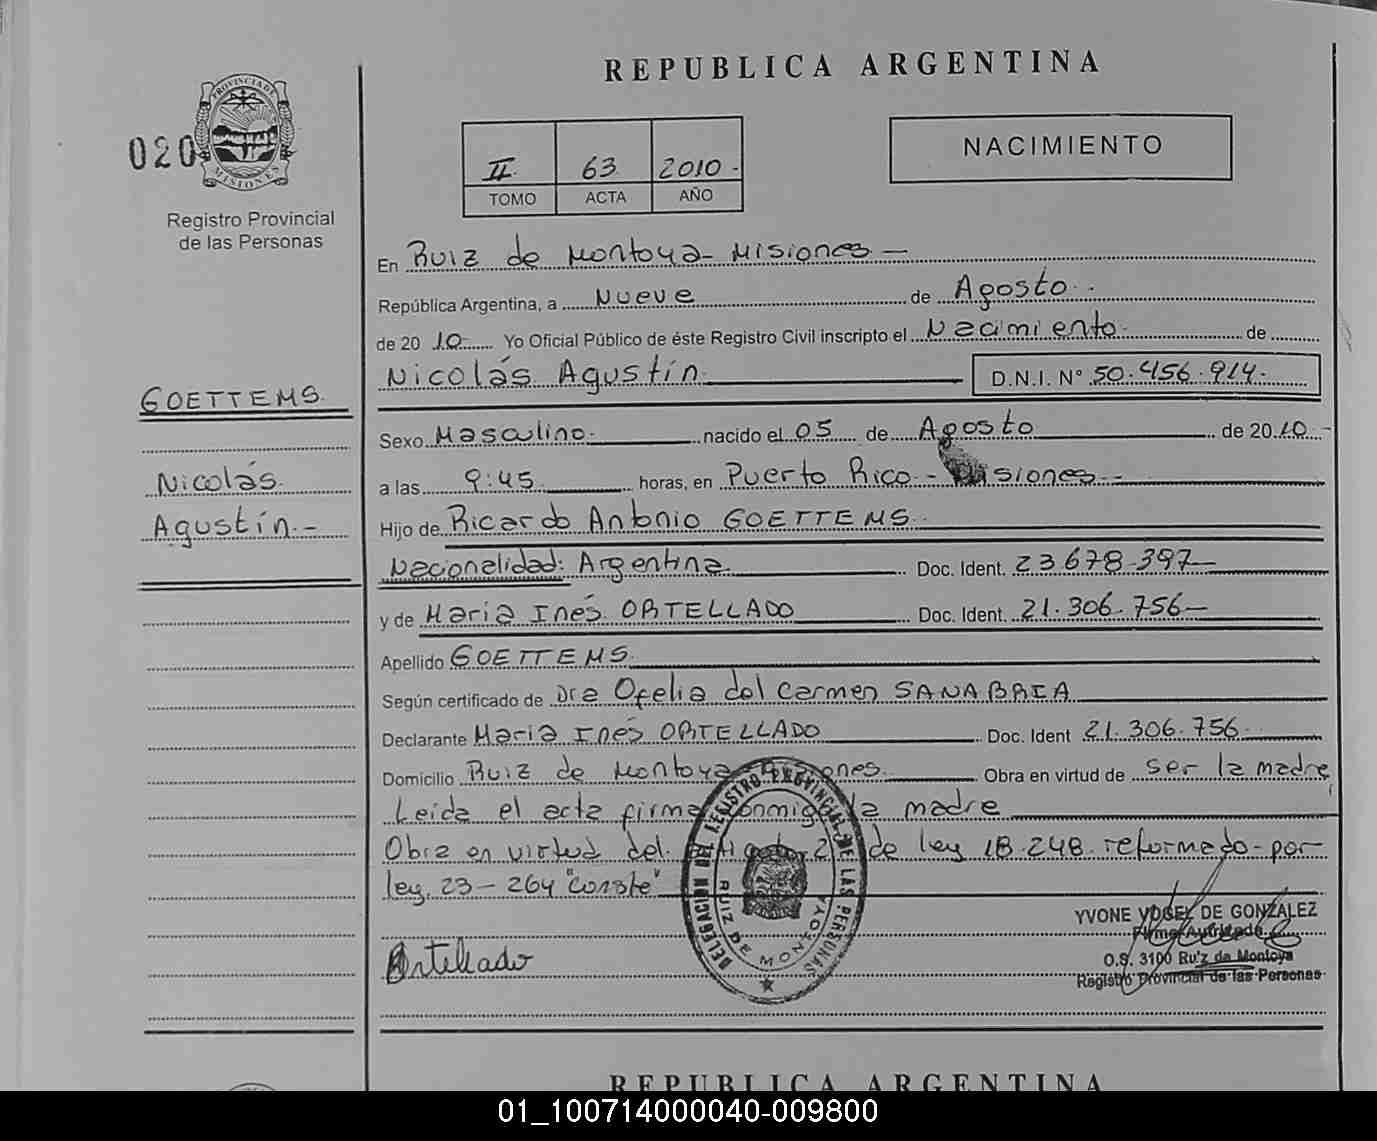 REPUBLICA ARGENTINA
PROVINCIA DE
MISIONES
020
Registro Provincial
de las Personas
II 63 2010.-
TOMO ACTA AÑO
NACIMIENTO
En Ruiz de Montoya - Misiones -
República Argentina, a Nueve de Agosto.-
de 20 10.- Yo Oficial Público de éste Registro Civil inscripto el Nacimiento de
Nicolás Agustín. D.N.I. N° 50.456.914.-
GOETTEMS.
Sexo Masculino.- nacido el 05 de Agosto de 20 10.-
Nicolás
a las 9:45 horas, en Puerto Rico - Misiones.-
Agustín.-
Hijo de Ricardo Antonio GOETTEMS.
Nacionalidad: Argentina. Doc. Ident. 23.678.397-
y de María Inés ORTELLADO Doc. Ident. 21.306.756-
Apellido GOETTEMS.
Según certificado de Dra Ofelia del Carmen SANABRIA
Declarante María Inés ORTELLADO Doc. Ident 21.306.756.
Domicilio Ruiz de Montoya - Misiones. Obra en virtud de ser la madre
Leída el acta firma conmigo la madre
Obra en virtud del 2 de ley 18.248 reformado por
ley 23-264 "conste"
DELEGACION DEL REGISTRO PROVINCIAL DE LAS PERSONAS
RUIZ DE MONTOYA
Ortellado
YVONE VOGEL DE GONZALEZ
Firma Autorizada
O.S. 3100 Ruiz de Montoya
Registro Provincial de las Personas
REPUBLICA ARGENTINA
01_100714000040-009800